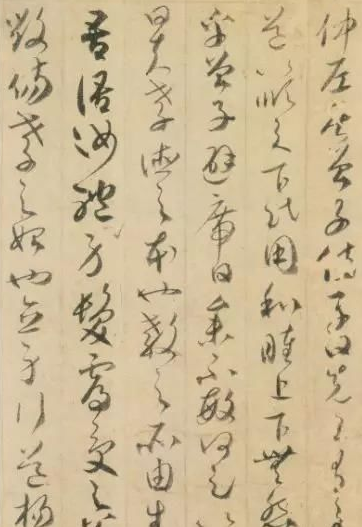 仲尼居曾子侍子曰先王有
道以順天下民用和睦上下無怨
乎曾子避席曰參不敏何足
曰夫孝德之本也教之所由生
吾語汝體身髮膚受之
毀傷孝之始也立身行道揚